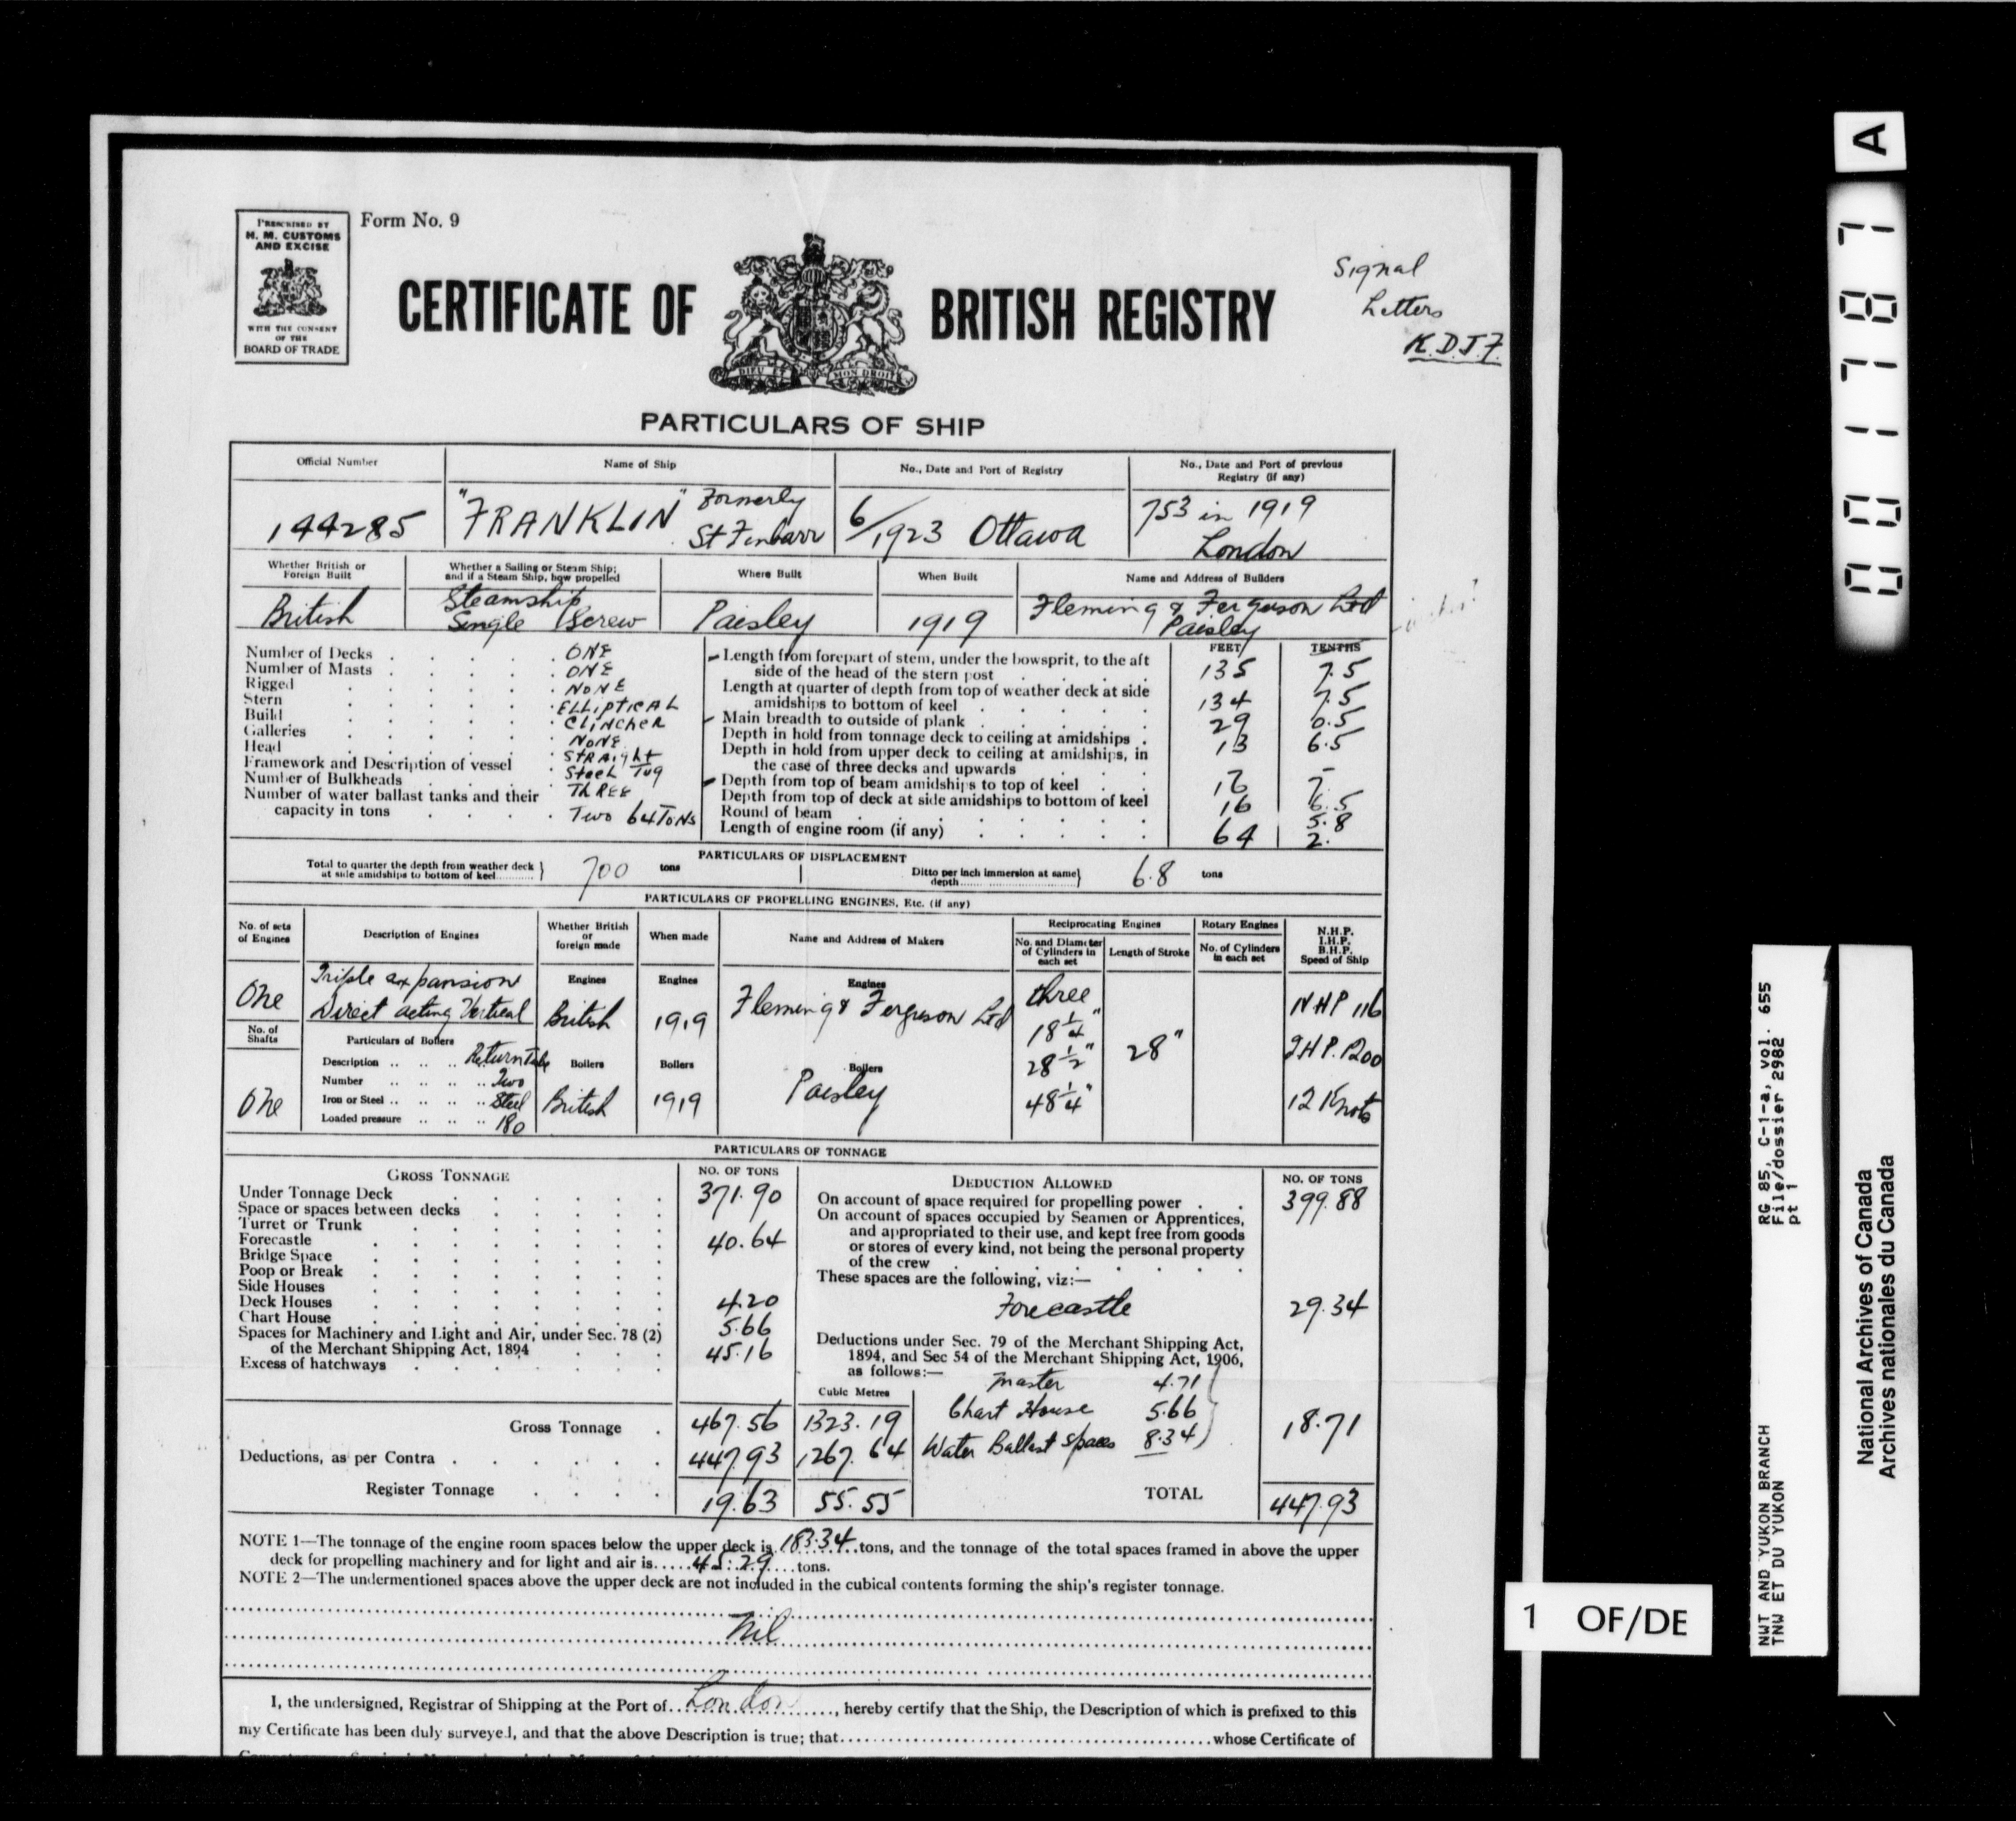 PRESCRIBED BY
H. M. CUSTOMS
AND EXCISE
WITH THE CONSENT
OF THE
BOARD OF TRADE
Form No. 9
CERTIFICATE OF BRITISH REGISTRY
DIEU ET MON DROIT
Signal
Letters
K.D.J.F.
PARTICULARS OF SHIP
Official Number
Name of Ship
No., Date and Port of Registry
No., Date and Port of previous
Registry (if any)
144285
"FRANKLIN" Formerly
St Finbarr
6/1923 Ottawa
753 in 1919
London
Whether British or
Foreign Built
Whether a Sailing or Steam Ship;
and if a Steam Ship, how propelled
Where Built
When Built
Name and Address of Builders
British
Steamship
Single Screw
Paisley
1919
Fleming & Ferguson Ltd
Paisley
Number of Decks . . . . . ONE
Number of Masts . . . . . ONE
Rigged . . . . . NONE
Stern . . . . . ELLIPTICAL
Build . . . . . CLINCHER
Galleries . . . . . NONE
Head . . . . . STRAIGHT
Framework and Description of vessel . Steel Tug
Number of Bulkheads . . . . THREE
Number of water ballast tanks and their
capacity in tons . . . . Two 64 TONS
FEET TENTHS
Length from forepart of stem, under the bowsprit, to the aft
side of the head of the stern post . . . . 135 7.5
Length at quarter of depth from top of weather deck at side
amidships to bottom of keel . . . . . 134 7.5
Main breadth to outside of plank . . . . . 29 0.5
Depth in hold from tonnage deck to ceiling at amidships . 13 6.5
Depth in hold from upper deck to ceiling at amidships, in
the case of three decks and upwards . . . –
Depth from top of beam amidships to top of keel . . 7.
Depth from top of deck at side amidships to bottom of keel 16 6.5
Round of beam . . . . . 5.8
Length of engine room (if any) . . . . . 64 2.
PARTICULARS OF DISPLACEMENT
Total to quarter the depth from weather deck
at side amidships to bottom of keel } 700 tons
Ditto per inch immersion at same
depth } 6.8 tons
PARTICULARS OF PROPELLING ENGINES, Etc. (if any)
No. of sets
of Engines
Description of Engines
Whether British
or
foreign made
When made
Name and Address of Makers
Reciprocating Engines
No. and Diameter
of Cylinders in
each set
Length of Stroke
Rotary Engines
No. of Cylinders
in each set
N.H.P.
I.H.P.
B.H.P.
Speed of Ship
One
Triple expansion
Direct acting Vertical
Engines
British
Engines
1919
Engines
Fleming & Ferguson Ltd
three
18 1/4"
28 1/2"
48 1/4"
28"
NHP 116
IHP. 1200
12 Knots
No. of
Shafts
One
Particulars of Boilers
Description .. .. .. Return Tube
Number .. .. .. .. Two
Iron or Steel .. .. .. .. Steel
Loaded pressure .. .. .. 180
Boilers
British
Boilers
1919
Boilers
Paisley
PARTICULARS OF TONNAGE
GROSS TONNAGE
NO. OF TONS
Under Tonnage Deck . . . . . 371.90
Space or spaces between decks . . . .
Turret or Trunk . . . . . .
Forecastle . . . . . . 40.64
Bridge Space . . . . . .
Poop or Break . . . . . .
Side Houses . . . . . .
Deck Houses . . . . . . 4.20
Chart House . . . . . . 5.66
Spaces for Machinery and Light and Air, under Sec. 78 (2)
of the Merchant Shipping Act, 1894 . . . 45.16
Excess of hatchways . . . . . .
Cubic Metres
Gross Tonnage . 467.56 1323.19
Deductions, as per Contra . . . . . . 447.93 1267.64
Register Tonnage . . . . 19.63 55.55
DEDUCTION ALLOWED
NO. OF TONS
On account of space required for propelling power . . 399.88
On account of spaces occupied by Seamen or Apprentices,
and appropriated to their use, and kept free from goods
or stores of every kind, not being the personal property
of the crew . . . . . .
These spaces are the following, viz:—
Forecastle 29.34
Deductions under Sec. 79 of the Merchant Shipping Act,
1894, and Sec 54 of the Merchant Shipping Act, 1906,
as follows:—
Master 4.71
Chart House 5.66
Water Ballast spaces 8.34
18.71
TOTAL 447.93
NOTE 1—The tonnage of the engine room spaces below the upper deck is 183.34 tons, and the tonnage of the total spaces framed in above the upper
deck for propelling machinery and for light and air is 45.29 tons.
NOTE 2—The undermentioned spaces above the upper deck are not included in the cubical contents forming the ship's register tonnage.
Nil
I, the undersigned, Registrar of Shipping at the Port of London, hereby certify that the Ship, the Description of which is prefixed to this
my Certificate has been duly surveyed, and that the above Description is true; that ........ whose Certificate of
A
001787
RG 85, C-1-a, vol. 655
File/dossier 2982
pt 1
NWT AND YUKON BRANCH
TNW ET DU YUKON
National Archives of Canada
Archives nationales du Canada
1 OF/DE